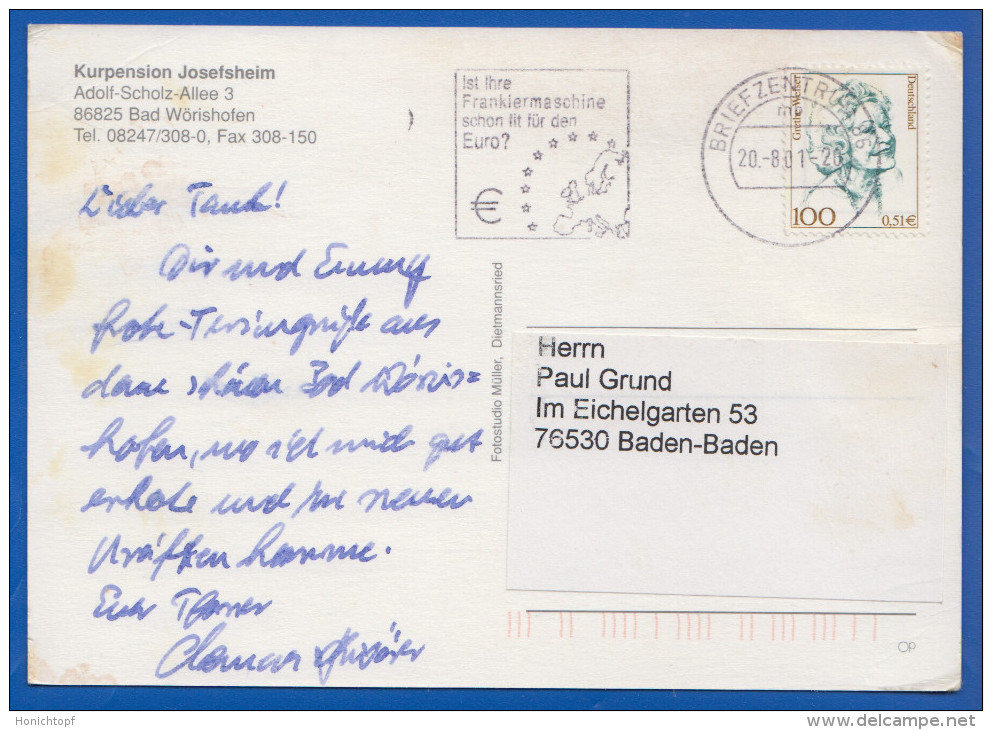 Kurpension Josefsheim
Adolf-Scholz-Allee 3
86825 Bad Wörishofen
Tel. 08247/308-0, Fax 308-150
Ist Ihre
Frankiermaschine
schon fit für den
Euro?
€
BRIEFZENTRUM 86
20.-8.01-20
Grethe Weiser
Deutschland
100
0,51€
Lieber
Dir und
aus
dem schönen Bad Wöris=
hofen, wo ich mich gut
erhole und zu neuen
Kräften komme.
Euer Pfarrer
Fotostudio Müller, Dietmannsried
Herrn
Paul Grund
Im Eichelgarten 53
76530 Baden-Baden
OP
Honichtopf
delcampe.net